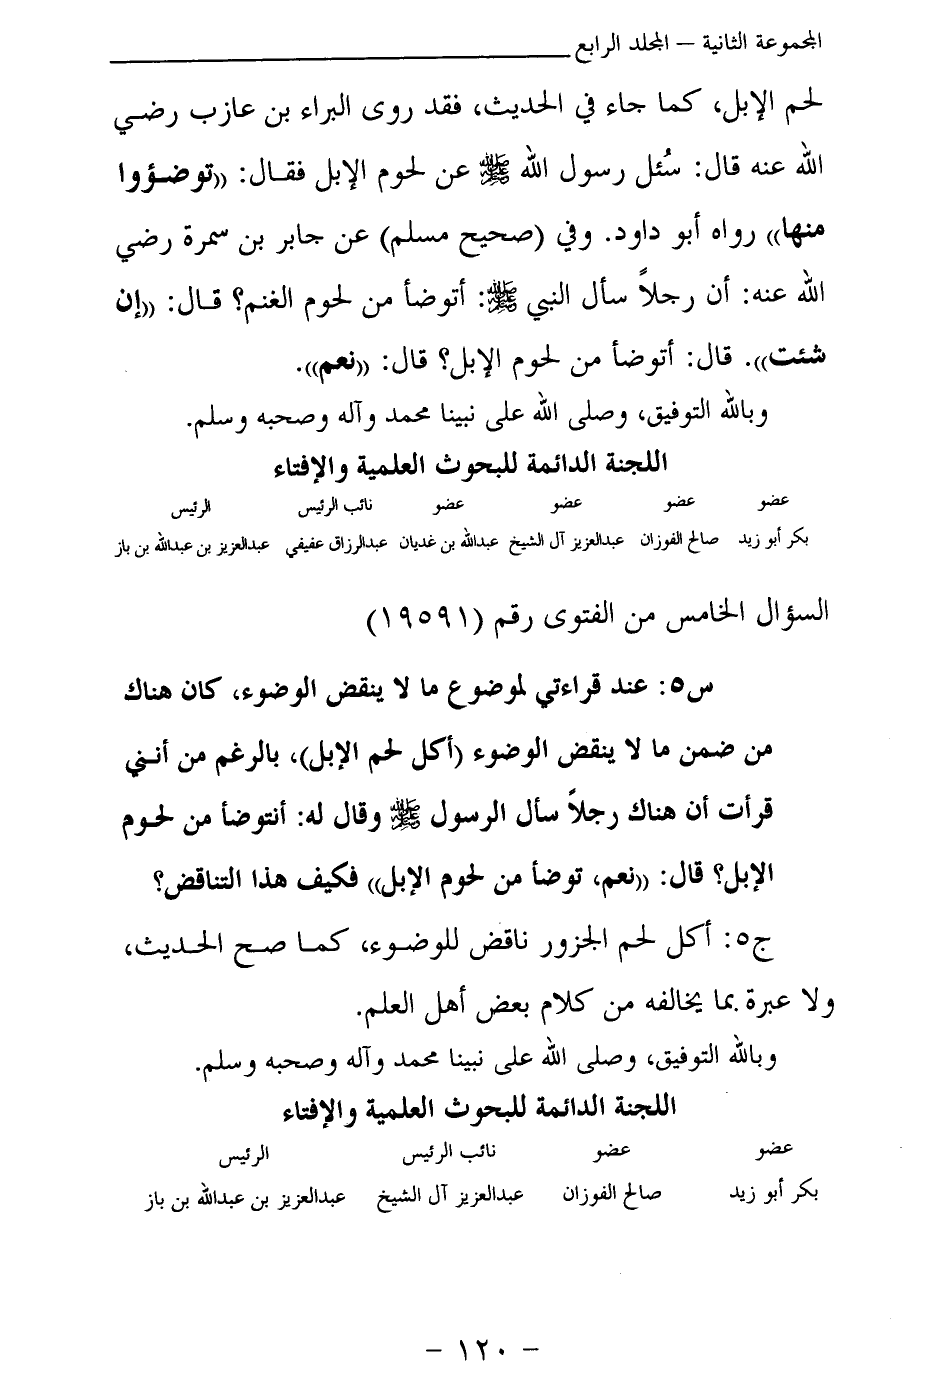 المجموعة الثانية – المجلد الرابع
لحم الإبل، كما جاء في الحديث، فقد روى البراء بن عازب رضي
الله عنه قال: سُئل رسول الله ﷺ عن لحوم الإبل فقـال: ((توضـؤوا
منها)) رواه أبو داود. وفي (صحيح مسلم) عن جابر بن سمرة رضي
الله عنه: أن رجلاً سأل النبي ﷺ: أتوضأ من لحوم الغنم؟ قـال: ((إن
شئت)). قال: أتوضأ من لحوم الإبل؟ قال: ((نعم)).
وبالله التوفيق، وصلى الله على نبينا محمد وآله وصحبه وسلم.
اللجنة الدائمة للبحوث العلمية والإفتاء
عضو عضو عضو عضو نائب الرئيس الرئيس
بكر أبو زيد صالح الفوزان عبدالعزيز آل الشيخ عبدالله بن غديان عبدالرزاق عفيفي عبدالعزيز بن عبدالله بن باز
السؤال الخامس من الفتوى رقم (١٩٥٩١)
س٥: عند قراءتي لموضوع ما لا ينقض الوضوء، كان هناك
من ضمن ما لا ينقض الوضوء (أكل لحم الإبل)، بالرغم من أنـني
قرأت أن هناك رجلاً سأل الرسول ﷺ وقال له: أنتوضأ من لحـوم
الإبل؟ قال: ((نعم، توضأ من لحوم الإبل)) فكيف هذا التناقض؟
ج٥: أكل لحم الجزور ناقض للوضـوء، كمـا صـح الحـديث،
ولا عبرة بما يخالفه من كلام بعض أهل العلم.
وبالله التوفيق، وصلى الله على نبينا محمد وآله وصحبه وسلم.
اللجنة الدائمة للبحوث العلمية والإفتاء
عضو عضو نائب الرئيس الرئيس
بكر أبو زيد صالح الفوزان عبدالعزيز آل الشيخ عبدالعزيز بن عبدالله بن باز
– ١٢٠ –